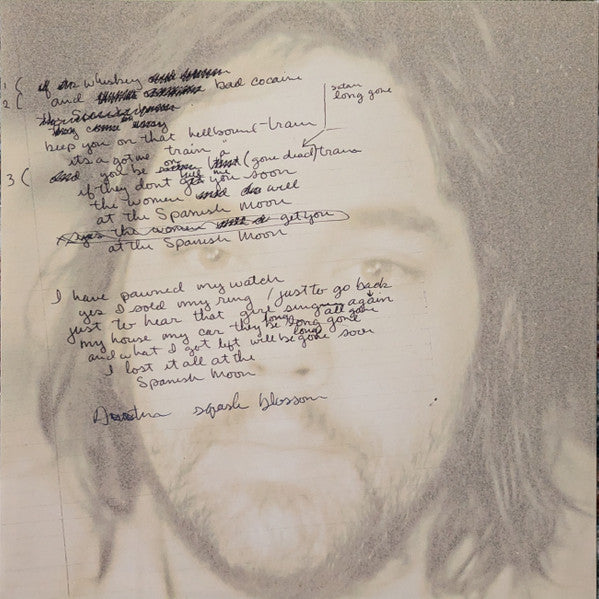 1 ( if the whiskey
2 ( and bad cocaine
the
they come away
satan
long gone
keep you on that hellbound-train
its a got me train a
3 ( and you be on (gone dead) train
if they dont get you soon
kill me
the women will do well
at the Spanish moon
yes the women will get you
at the Spanish Moon
I have pawned my watch
yes I sold my ring / just to go back
just to hear that girl sing again
my house my car they be long gone
long all gone
and what I got left will be gone soon
long
I lost it all at the
Spanish Moon
squash blossom